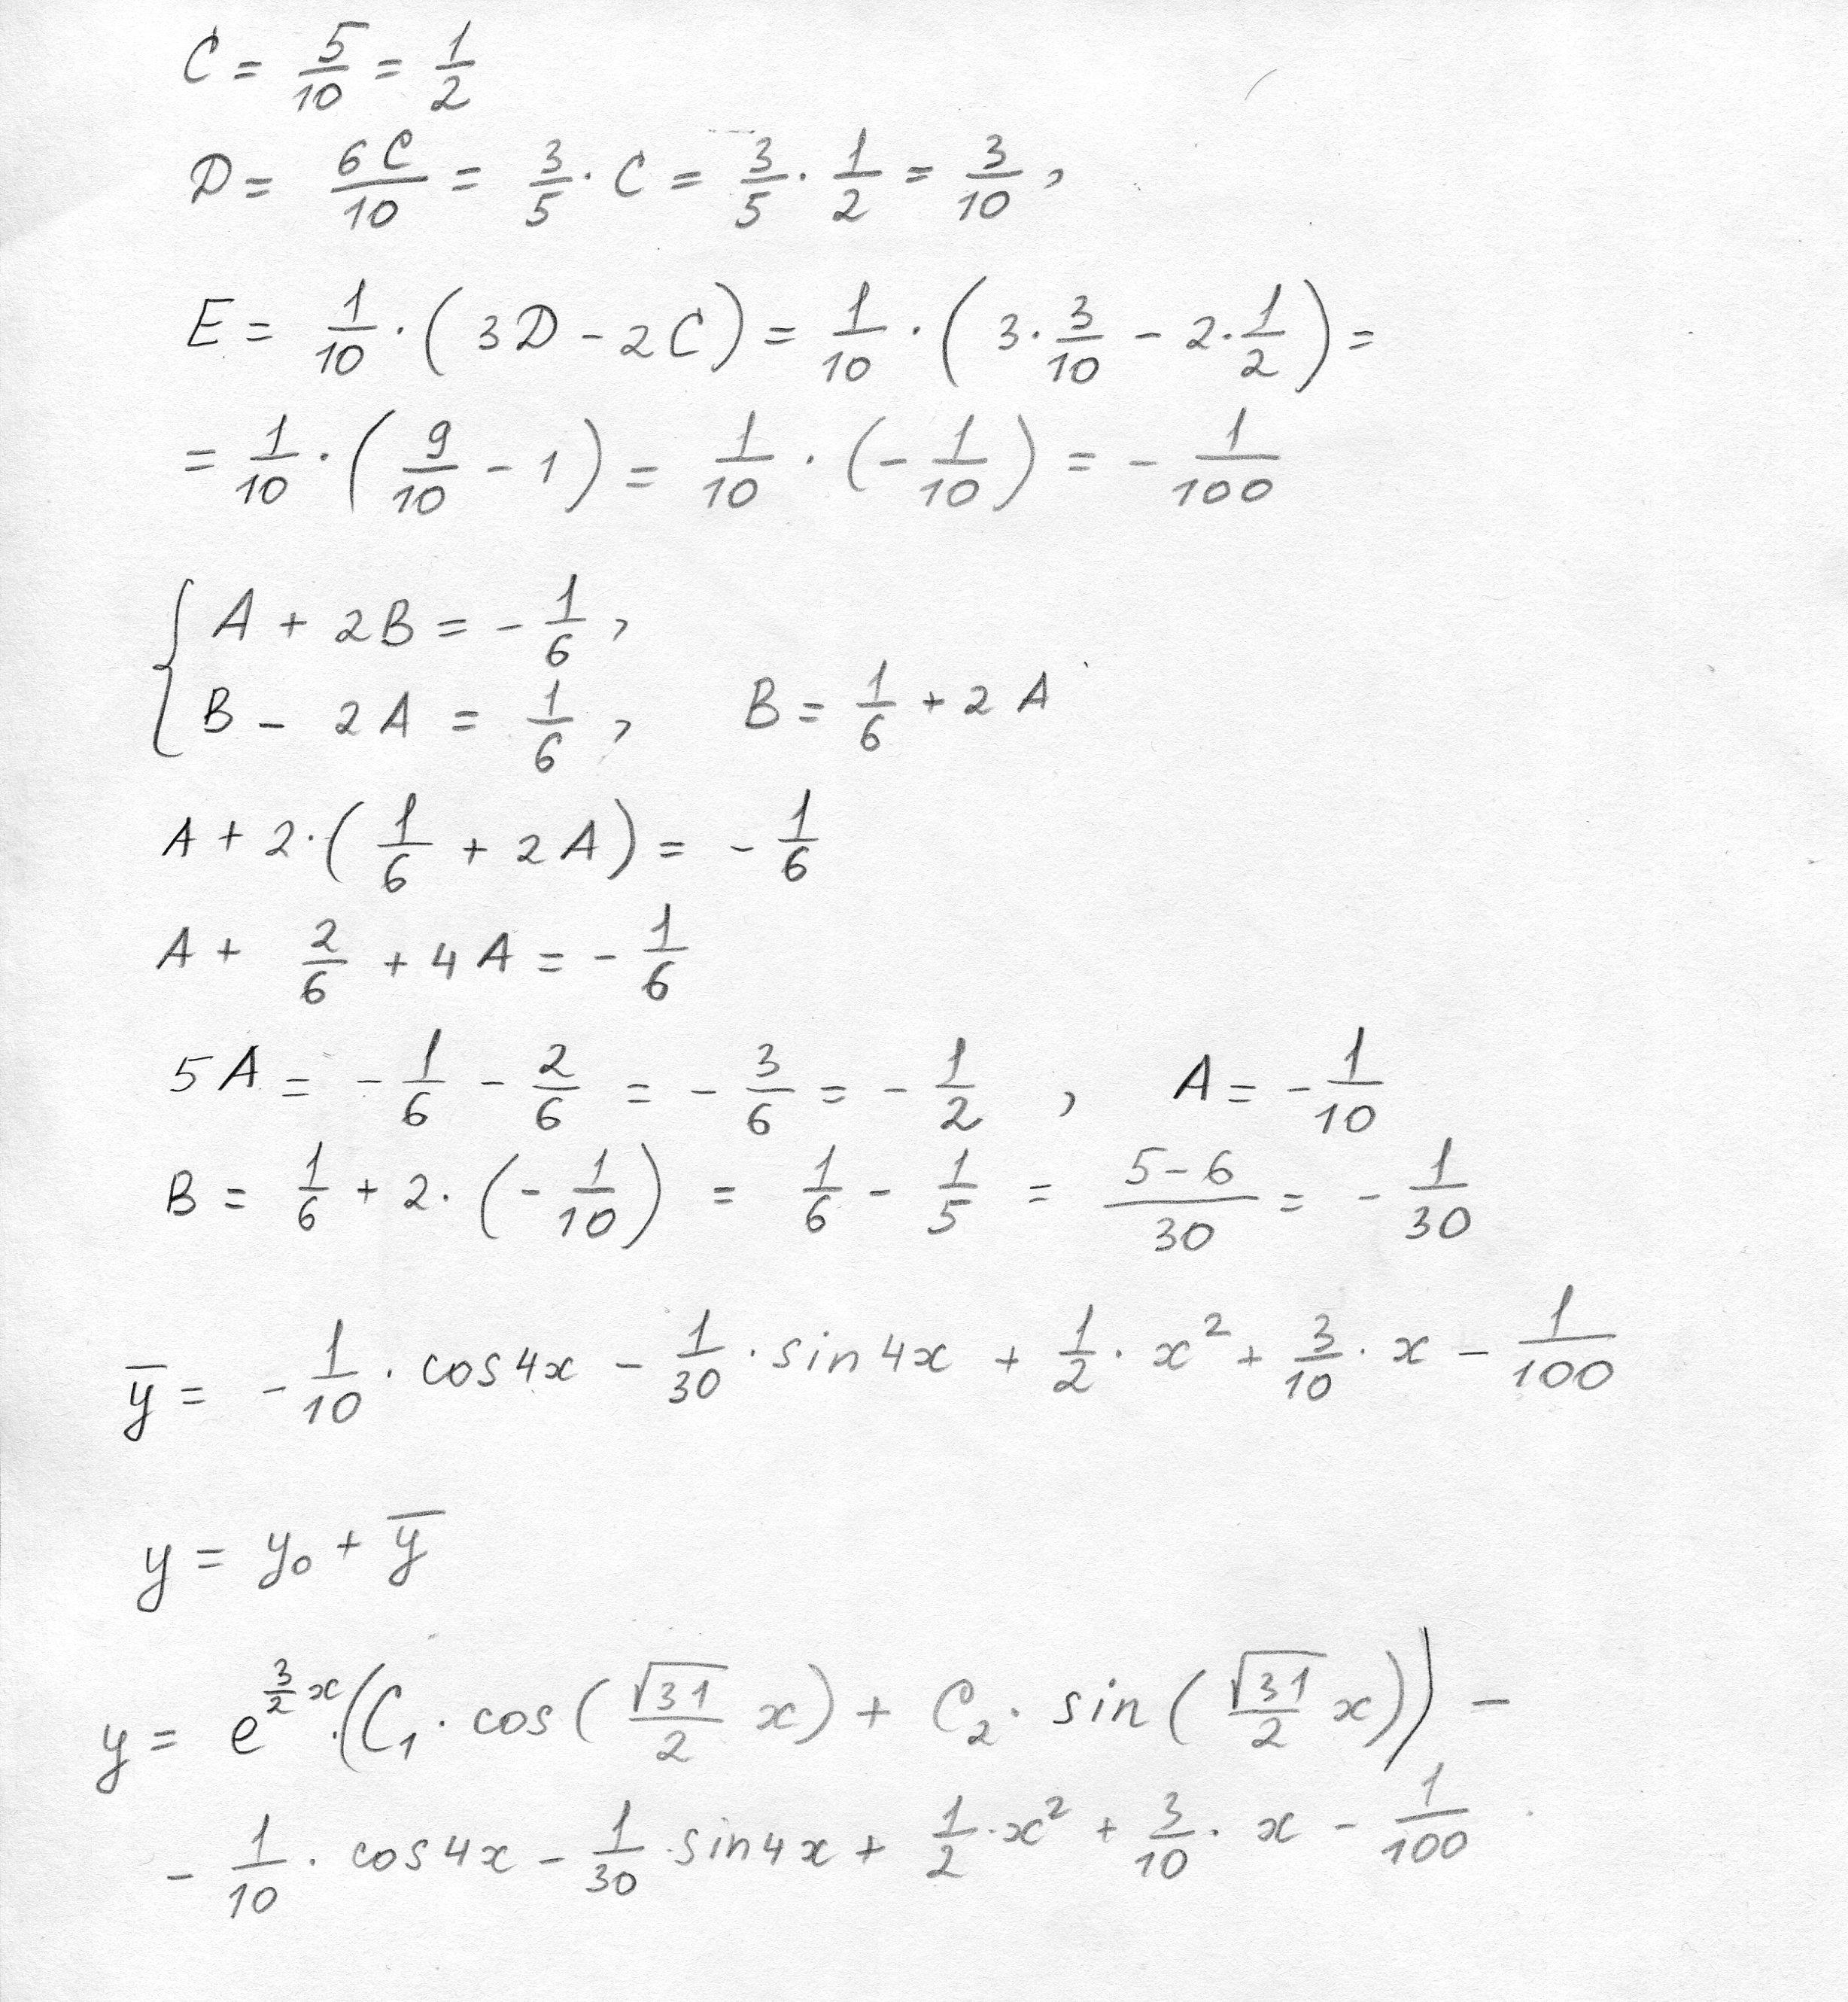 C = 5/10 = 1/2
D = 6C/10 = 3/5 · C = 3/5 · 1/2 = 3/10,
E = 1/10 · (3D - 2C) = 1/10 · (3 · 3/10 - 2 · 1/2) =
= 1/10 · (9/10 - 1) = 1/10 · (- 1/10) = - 1/100
{ A + 2B = - 1/6,
B - 2A = 1/6, B = 1/6 + 2A
A + 2 · (1/6 + 2A) = - 1/6
A + 2/6 + 4A = - 1/6
5A = - 1/6 - 2/6 = - 3/6 = - 1/2, A = - 1/10
B = 1/6 + 2 · (- 1/10) = 1/6 - 1/5 = (5-6)/30 = - 1/30
y̅ = - 1/10 · cos4x - 1/30 · sin4x + 1/2 · x² + 3/10 · x - 1/100
y = y₀ + y̅
y = e^(3/2 x) · (C₁ · cos(√31/2 x) + C₂ · sin(√31/2 x)) -
- 1/10 · cos4x - 1/30 · sin4x + 1/2 · x² + 3/10 · x - 1/100